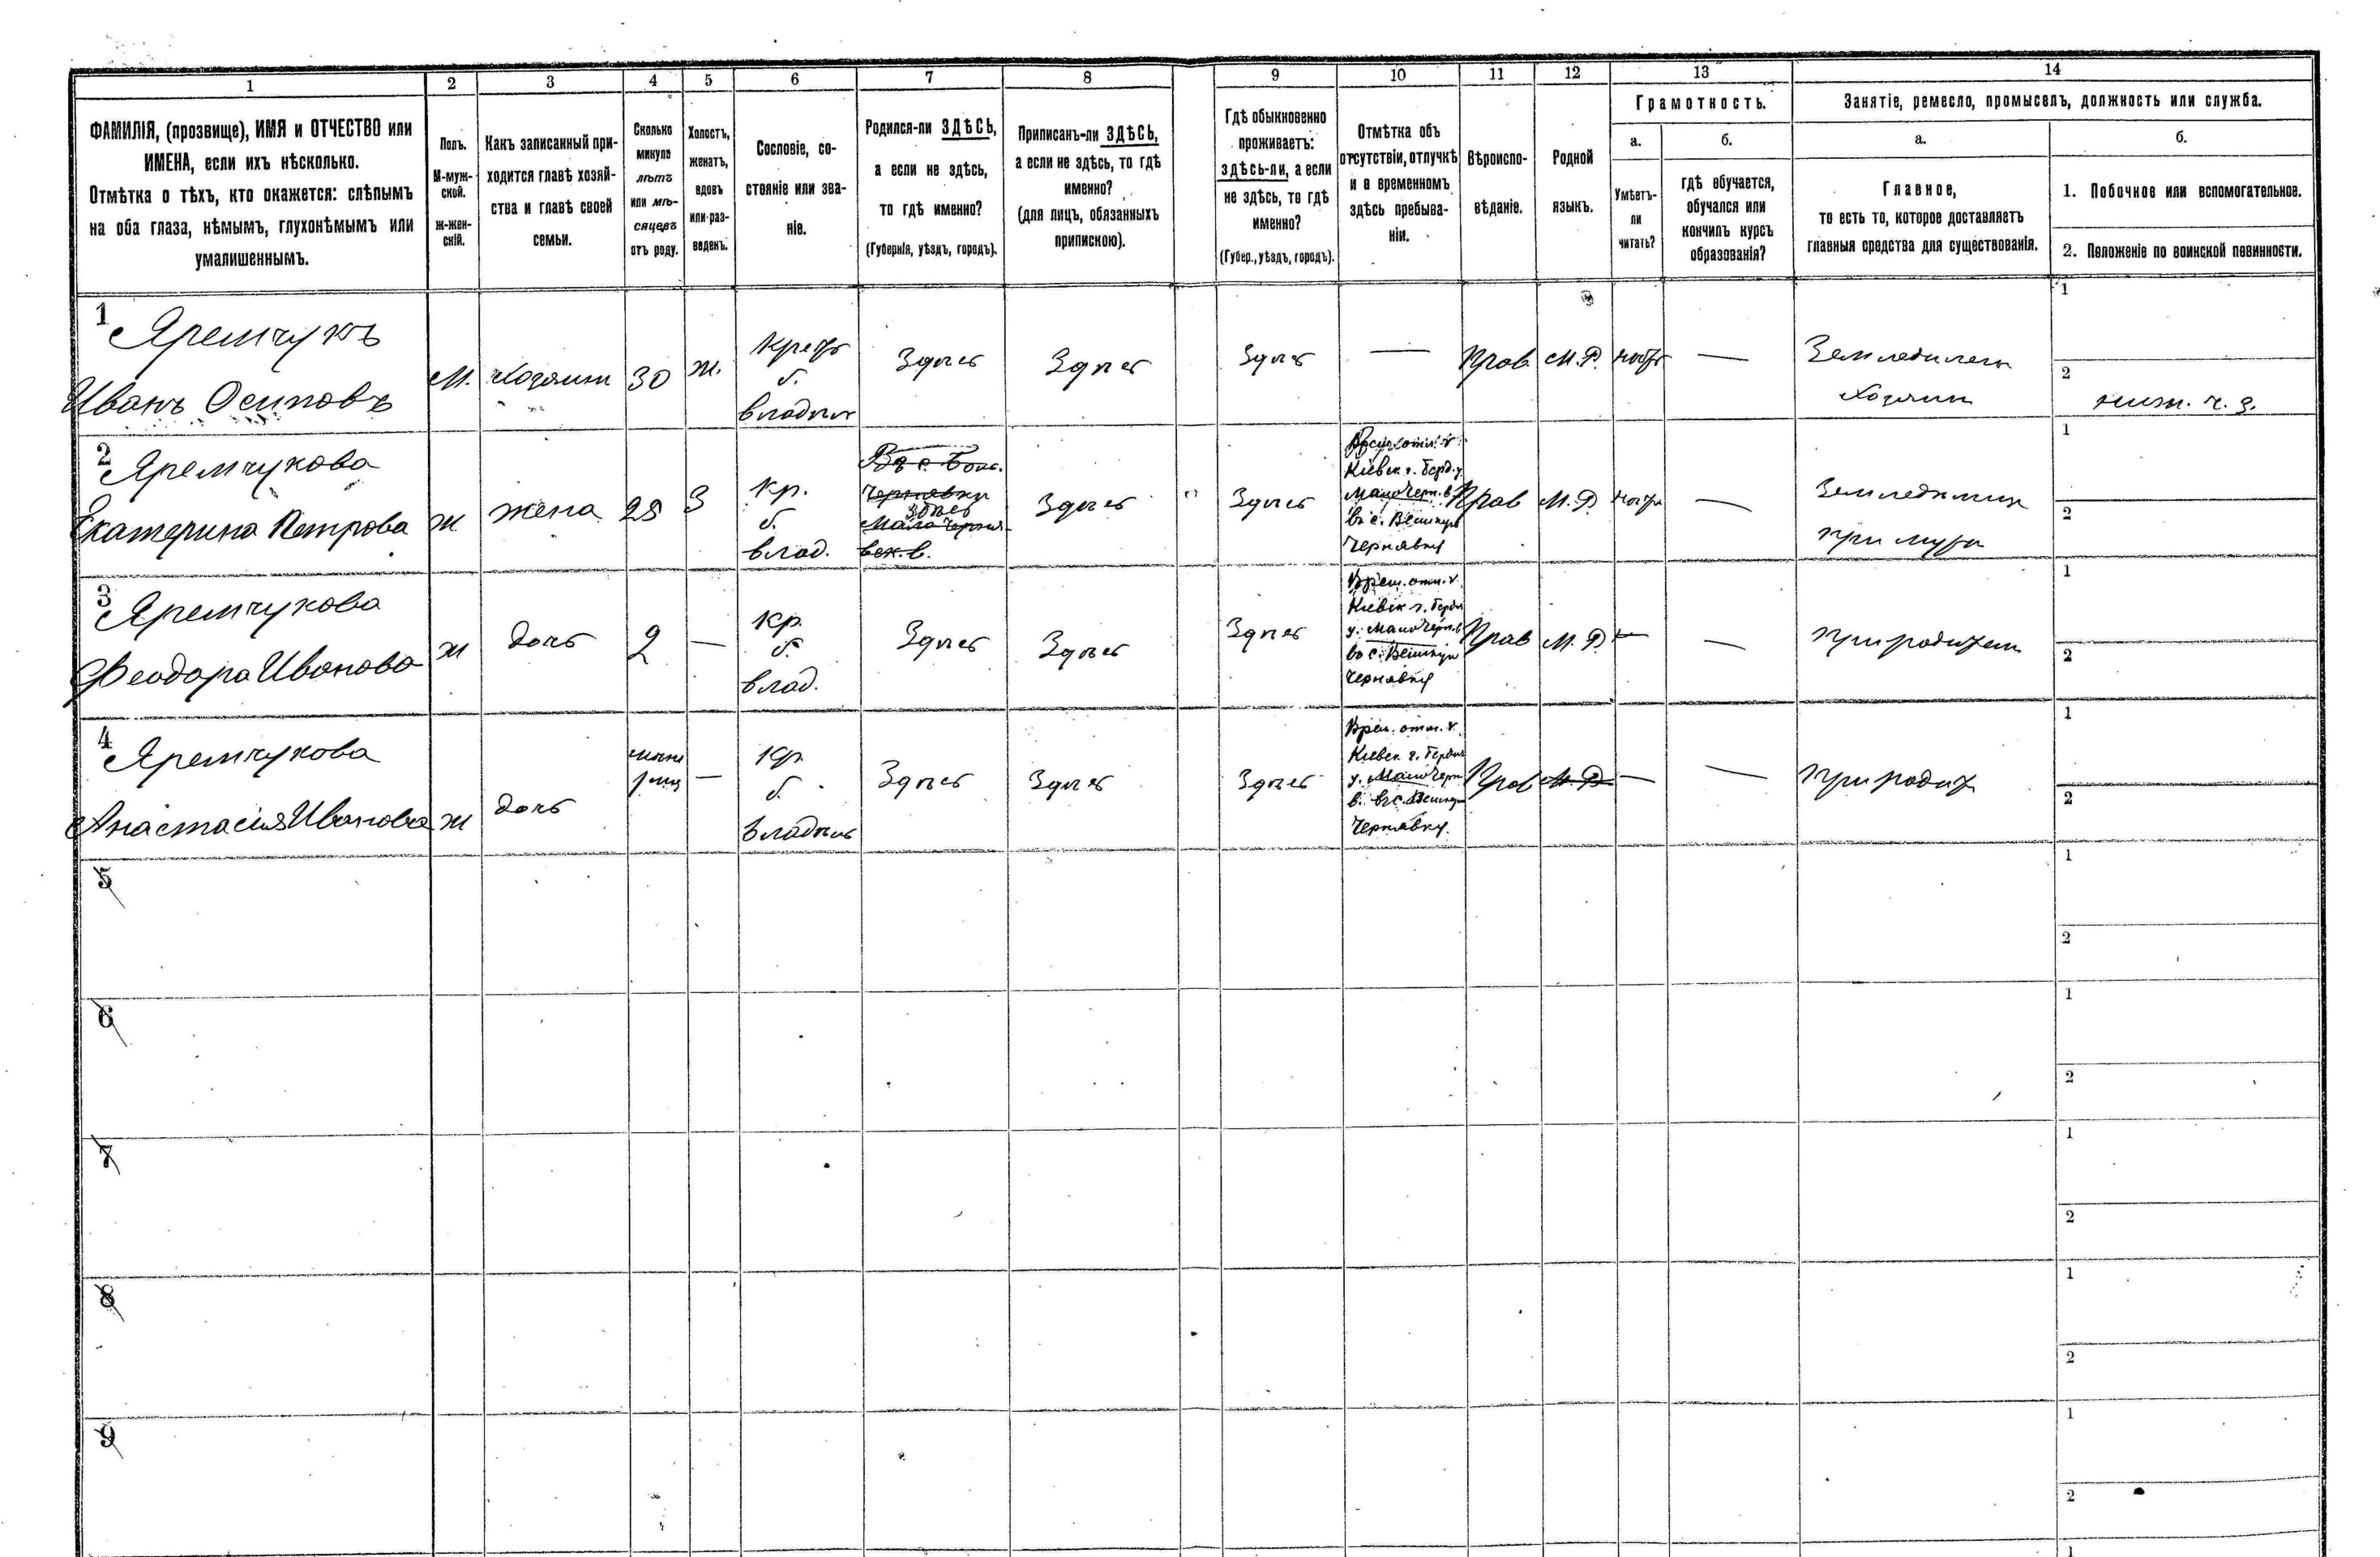 1
2
3
4
5
6
7
8
9
10
11
12
13
14
ФАМИЛІЯ, (прозвище), ИМЯ и ОТЧЕСТВО или
ИМЕНА, если ихъ нѣсколько.
Отмѣтка о тѣхъ, кто окажется: слѣпымъ
на оба глаза, нѣмымъ, глухонѣмымъ или
умалишеннымъ.
Полъ.
М-муж-
ской.
ж-жен-
скій.
Какъ записанный при-
ходится главѣ хозяй-
ства и главѣ своей
семьи.
Сколько
минуло
лѣтъ
или мѣ-
сяцевъ
отъ роду.
Холостъ,
женатъ,
вдовъ
или раз-
веденъ.
Сословіе, со-
стояніе или зва-
ніе.
Родился-ли ЗДѢСЬ,
а если не здѣсь,
то гдѣ именно?
(Губернія, уѣздъ, городъ).
Приписанъ-ли ЗДѢСЬ,
а если не здѣсь, то гдѣ
именно?
(для лицъ, обязанныхъ
припискою).
Гдѣ обыкновенно
проживаетъ:
здѣсь-ли, а если
не здѣсь, то гдѣ
именно?
(Губер., уѣздъ, городъ).
Отмѣтка объ
отсутствіи, отлучкѣ
и о временномъ
здѣсь пребыва-
ніи.
Вѣроиспо-
вѣданіе.
Родной
языкъ.
Грамотность.
а.
Умѣетъ-
ли
читать?
б.
гдѣ обучается,
обучался или
кончилъ курсъ
образованія?
Занятіе, ремесло, промыселъ, должность или служба.
а.
Главное,
то есть то, которое доставляетъ
главныя средства для существованія.
б.
1. Побочное или вспомогательное.
2. Положеніе по воинской повинности.
1
Яремчукъ
Иванъ Осиповъ
М.
Хозяин
30
ж.
Крест
б.
владѣл
Здѣсь
Здѣсь
Здѣсь
—
Прав.
М. Р.
—
Земледѣлец
Хозяин
1
2
2
Яремчукова
Екатерина Петрова
ж
жена
З
кр.
б.
влад.
Въ с. Бол.
Чернявки
Здѣсь
Мало Черняв.
вск. в.
Здѣсь
"
Здѣсь
Киевск г. Берд. у.
Мало Черн. в
в с.
Чернявку
Прав
М. Р.
—
при мужѣ
1
2
3
Яремчукова
Феодора Иванова
ж
дочь
2
—
кр.
б.
влад.
Здѣсь
Здѣсь
Здѣсь
Врем. отл. в
Киевск г. Берд
у. Мало Черн. в
во с.
Чернявку
Прав
М. Р.
—
—
при родител
1
2
4
Яремчукова
Анастасия Иванова
ж
дочь
1 мц
—
кр
б.
владѣл
Здѣсь
Здѣсь
Здѣсь
Врем. отл. в
Киевск г. Берд
у. Мало Черн
в. в с.
Чернявку.
Прав
М. Р.
—
—
при родит
1
2
5
1
2
6
1
2
7
1
2
8
1
2
9
1
2
1